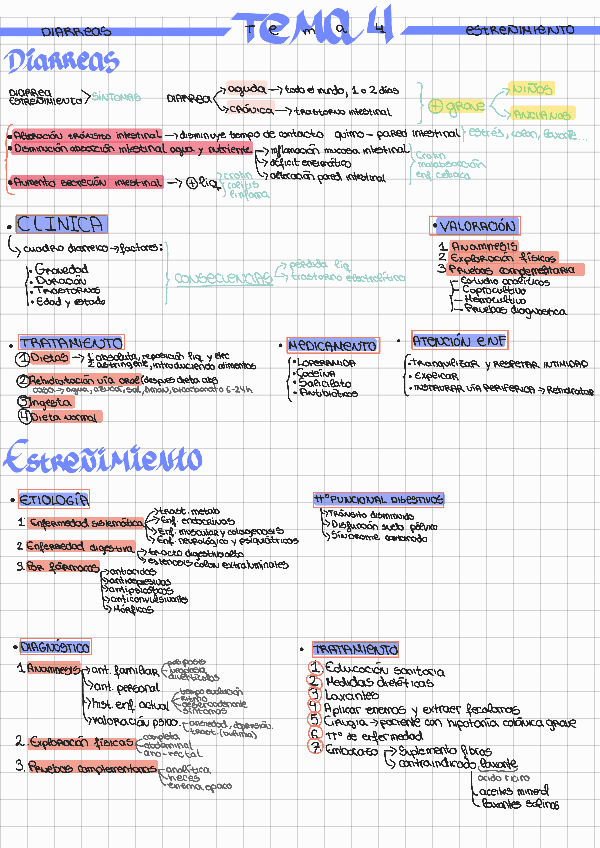 DIARREAS
TEMA 4
ESTREÑIMIENTO
Diarreas
DIARREA
ESTREÑIMIENTO > SÍNTOMAS
DIARREA
→ aguda → todo el mundo, 1 o 2 días
→ CRÓNICA → trastorno intestinal
+ grave
→ NIÑOS
→ ANCIANOS
• Alteración tránsito intestinal → disminuye tiempo de contacto quimo - pared intestinal
estrés, colon, laxante...
• Disminución absorción intestinal agua y nutriente
→ inflamación mucosa intestinal
→ déficit enzimático
→ alteración pared intestinal
Crohn
malabsorción
enf. celiaca
• Aumento secreción intestinal → + líq
crohn
colitis
linfoma
• CLINICA
↳ cuadro diarreico → factores:
• Gravedad
• Duración
• Trastornos
• Edad y estado
CONSECUENCIAS
→ pérdida líq
→ trastorno electrolítico
• VALORACIÓN
1. Anamnesis
2. Exploración físicas
3. Pruebas complementaria
- Estudio analíticos
- Coprocultivo
- Hemocultivo
- Pruebas diagnostica
• TRATAMIENTO
1 Dietas
→ 1º absoluta, reposición líq y elec
2º astringente, introduciendo alimentos
2 Rehidratación vía oral (despues dieta abs
casa → agua, azucar, sal, limon, bicarbonato 6-24h
3 Ingesta
4 Dieta normal
• MEDICAMENTO
• LOPERAMIDA
• Codeína
• Salicilato
• Antibióticos
• ATENCIÓN ENF
• TRANQUILIZAR y RESPETAR INTIMIDAD
• EXPLICAR
• INSTAURAR VÍA PERIFERICA → Rehidratar
Estreñimiento
• ETIOLOGÍA
1. Enfermedad sistemática
→ trast. metab
→ Enf. endocrinos
→ Enf. muscular y colagenosis
→ Enf. neurológica y psiquiátricos
2. Enfermedad digestiva
→ tracto digestivo alto
→ estenosis colon extraluminales
3. Por fármacos
→ antiacidos
→ antidepresivos
→ antipsicóticos
→ anticonvulsivantes
→ Mórficos
ttº FUNCIONAL DIGESTIVOS
→ Tránsito disminuido
→ Disfunción suelo pélvico
→ Síndrome combinado
• DIAGNÓSTICO
1. Anamnesis
→ ant. familiar
poliposis
neoplasia
diverticulos
→ ant. personal
→ hist. enf. actual
tiempo evolución
Ritmo
desencadenante
síntomas
→ valoración psico.
ansiedad, depresión
trast. (bulimia)
2. Exploración físicas
completa
abdominal
ano-rectal
3. Pruebas complementarias
analítica
heces
enema opaco
• TRATAMIENTO
1 Educación sanitaria
2 Medidas dietéticas
3 Laxantes
4 Aplicar enemas y extraer fecalomas
5 Cirugía → paciente con hipotonía colónica grave
6 ttº de enfermedad
7 Embarazo
→ Suplemento fibras
→ contraindicado laxante
→ aceites mineral
→ laxantes salinos